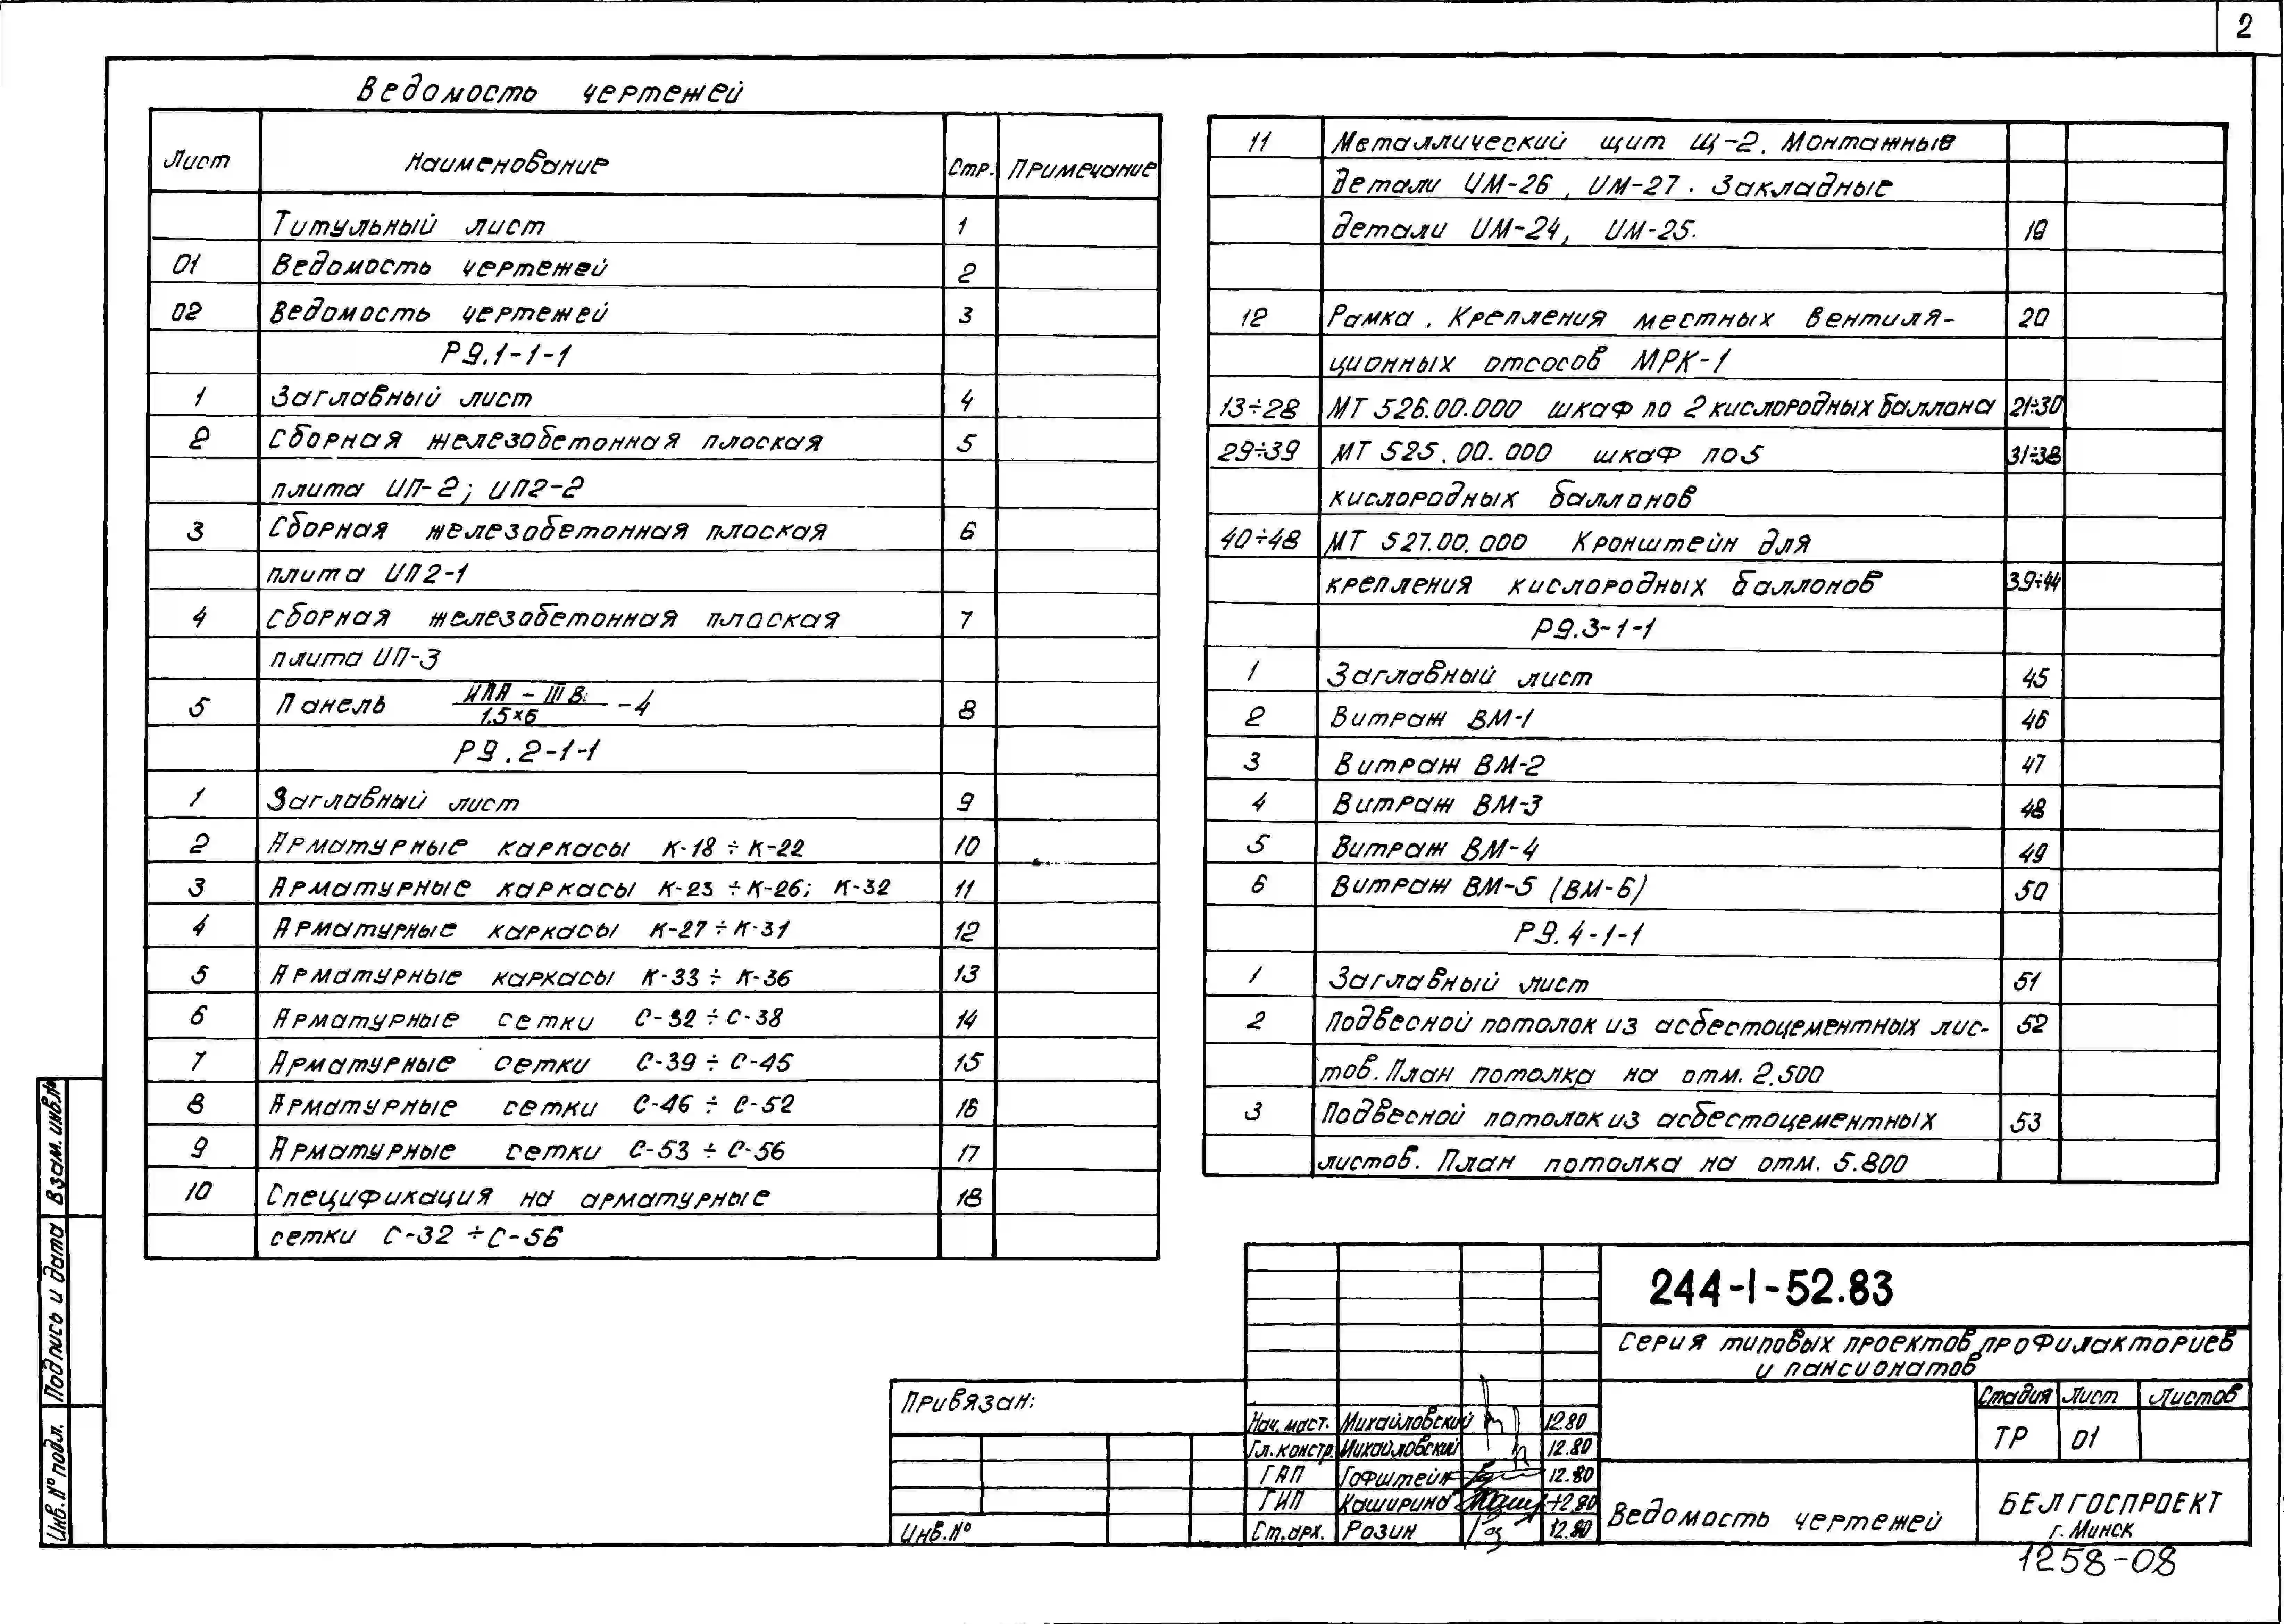 2
Ведомость чертежей
Лист Наименование Стр. Примечание
Титульный лист 1
01 Ведомость чертежей 2
02 Ведомость чертежей 3
Р9.1-1-1
1 Заглавный лист 4
2 Сборная железобетонная плоская 5
плита ИП-2; ИП2-2
3 Сборная железобетонная плоская 6
плита ИП2-1
4 Сборная железобетонная плоская 7
плита ИП-3
5 Панель ИПА - III В / 1.5×6 -4 8
Р9.2-1-1
1 Заглавный лист 9
2 Арматурные каркасы К-18 ÷ К-22 10
3 Арматурные каркасы К-23 ÷ К-26; К-32 11
4 Арматурные каркасы К-27 ÷ К-31 12
5 Арматурные каркасы К-33 ÷ К-36 13
6 Арматурные сетки С-32 ÷ С-38 14
7 Арматурные сетки С-39 ÷ С-45 15
8 Арматурные сетки С-46 ÷ С-52 16
9 Арматурные сетки С-53 ÷ С-56 17
10 Спецификация на арматурные 18
сетки С-32 ÷ С-56
11 Металлический щит Щ-2. Монтажные
детали ИМ-26, ИМ-27. Закладные
детали ИМ-24, ИМ-25. 19
12 Рамка. Крепления местных вентиля- 20
ционных отсосов МРК-1
13÷28 МТ 526.00.000 шкаф по 2 кислородных баллона 21÷30
29÷39 МТ 525.00.000 шкаф по 5 31÷38
кислородных баллонов
40÷48 МТ 527.00.000 Кронштейн для
крепления кислородных баллонов 39÷44
Р9.3-1-1
1 Заглавный лист 45
2 Витраж ВМ-1 46
3 Витраж ВМ-2 47
4 Витраж ВМ-3 48
5 Витраж ВМ-4 49
6 Витраж ВМ-5 (ВМ-6) 50
Р9.4-1-1
1 Заглавный лист 51
2 Подвесной потолок из асбестоцементных лис- 52
тов. План потолка на отм. 2.500
3 Подвесной потолок из асбестоцементных 53
листов. План потолка на отм. 5.800
Взам. инв.№
Подпись и дата
Инв.№ подл.
Привязан:
Инв.№
Нач. маст. Михайловский 12.80
Гл. констр. Михайловский 12.80
ГАП Гофштейн 12.80
ГИП Каширина 12.80
Ст. арх. Розин 12.80
244-1-52.83
Серия типовых проектов профилакториев
и пансионатов
Стадия Лист Листов
ТР 01
Ведомость чертежей
БЕЛГОСПРОЕКТ
г. Минск
1258-08